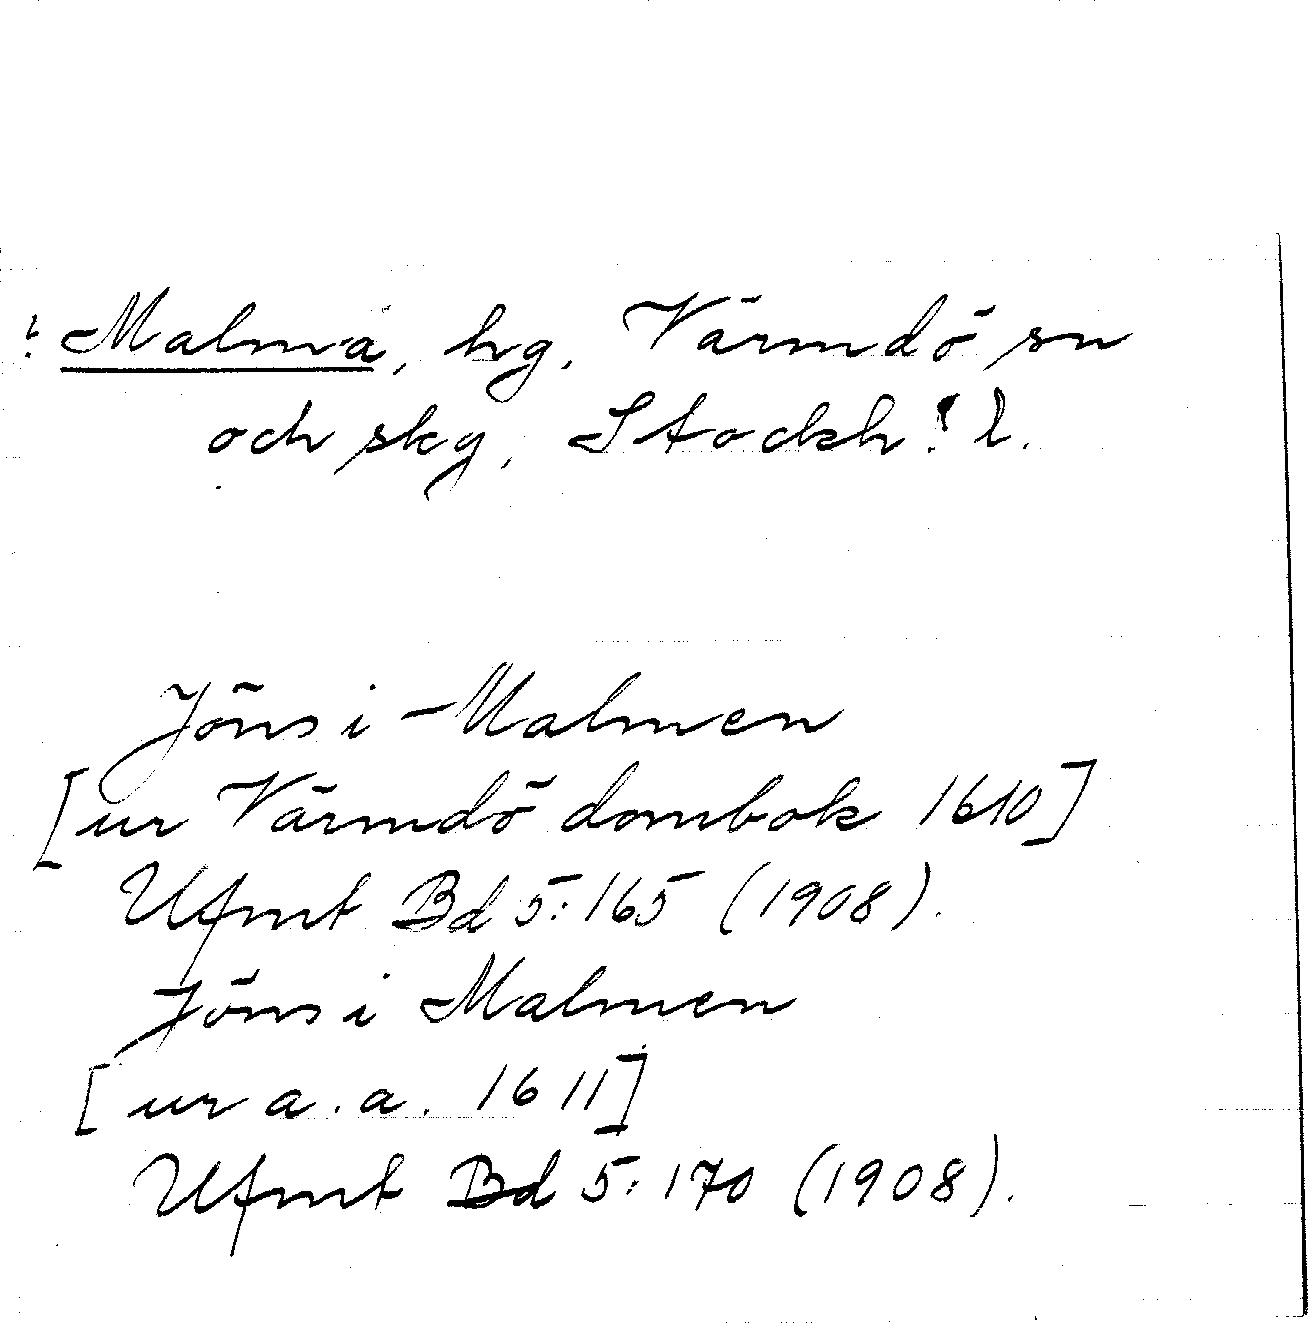 ! Malma, hg, Värmdö sn
och skg, Stockh:s l.
Jöns i Malmen
[ur Värmdö dombok 1610]
Ufmt Bd 5:165 (1908).
Jöns i Malmen
[ur a.a. 1611]
Ufmt Bd 5:170 (1908).